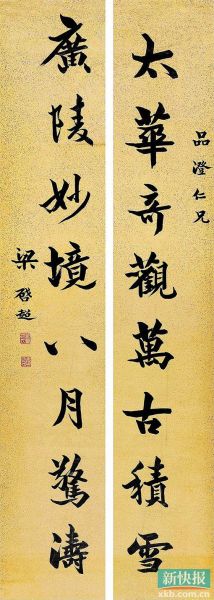 品澄仁兄
太華奇觀萬古積雪
廣陵妙境八月驚濤
梁啓超
新快报
xkb.com.cn